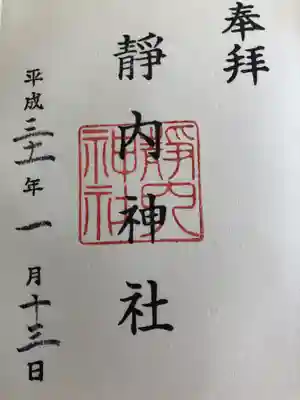 奉拝
靜内神社
靜内神社
平成三十一年一月十三日